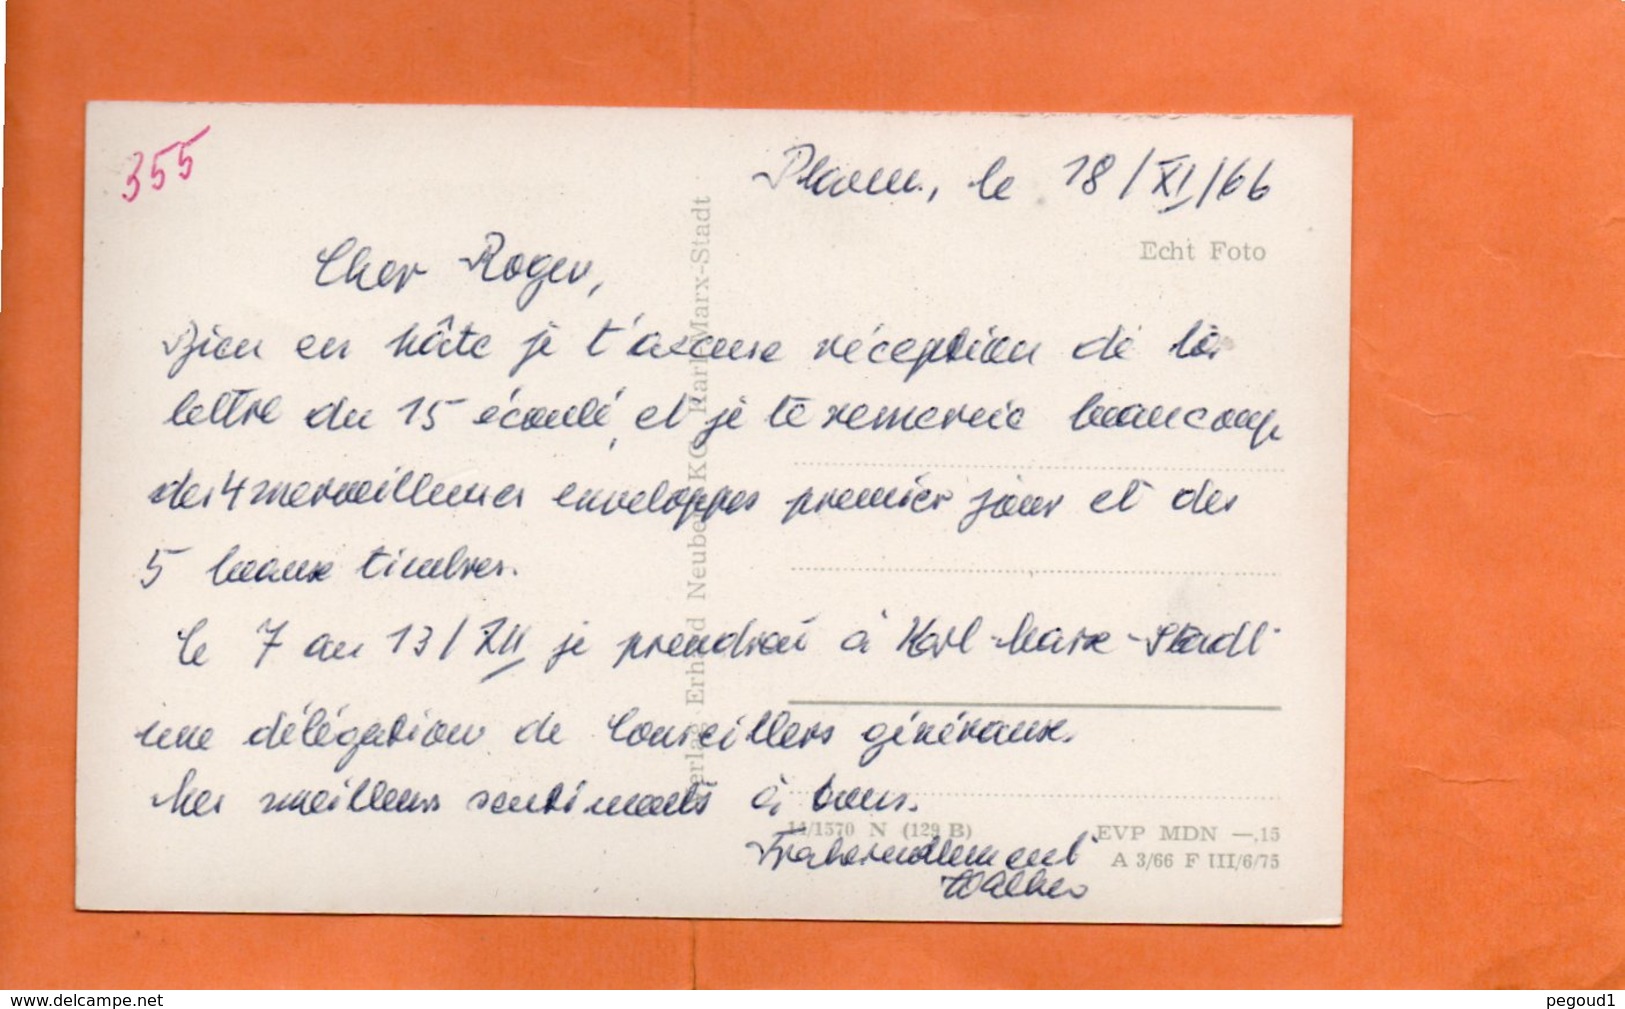 355
Plauen, le 18/XI/66
Echt Foto
Cher Roger,
Bien en hâte je t'accuse réception de ta
lettre du 15 écoulé, et je te remercie beaucoup
des 4 merveilleuses enveloppes premier jour et des
5 beaux timbres.
Le 7 au 13/XII je prendrai à Karl-Marx-Stadt
une délégation de Conseillers généraux.
Mes meilleurs sentiments à tous.
Fraternellement
Walther
Verlag Erhard Neubert KG Karl-Marx-Stadt
11/1570 N (129 B)
EVP MDN —,15
A 3/66 F III/6/75
www.delcampe.net
pegoud1